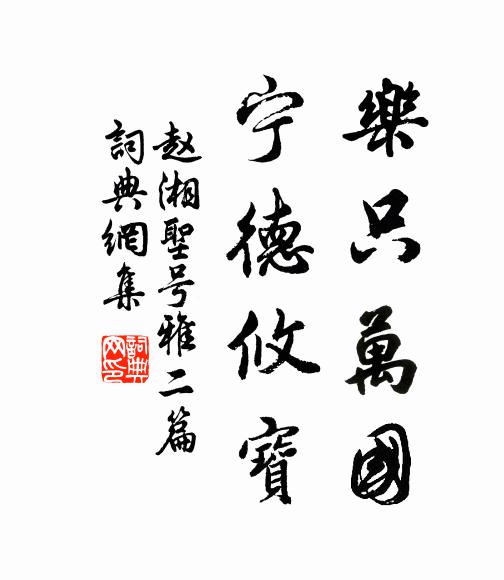 樂只萬國
宁德攸寶
赵湘聖号雅二篇
詞典網集
詞典
网印